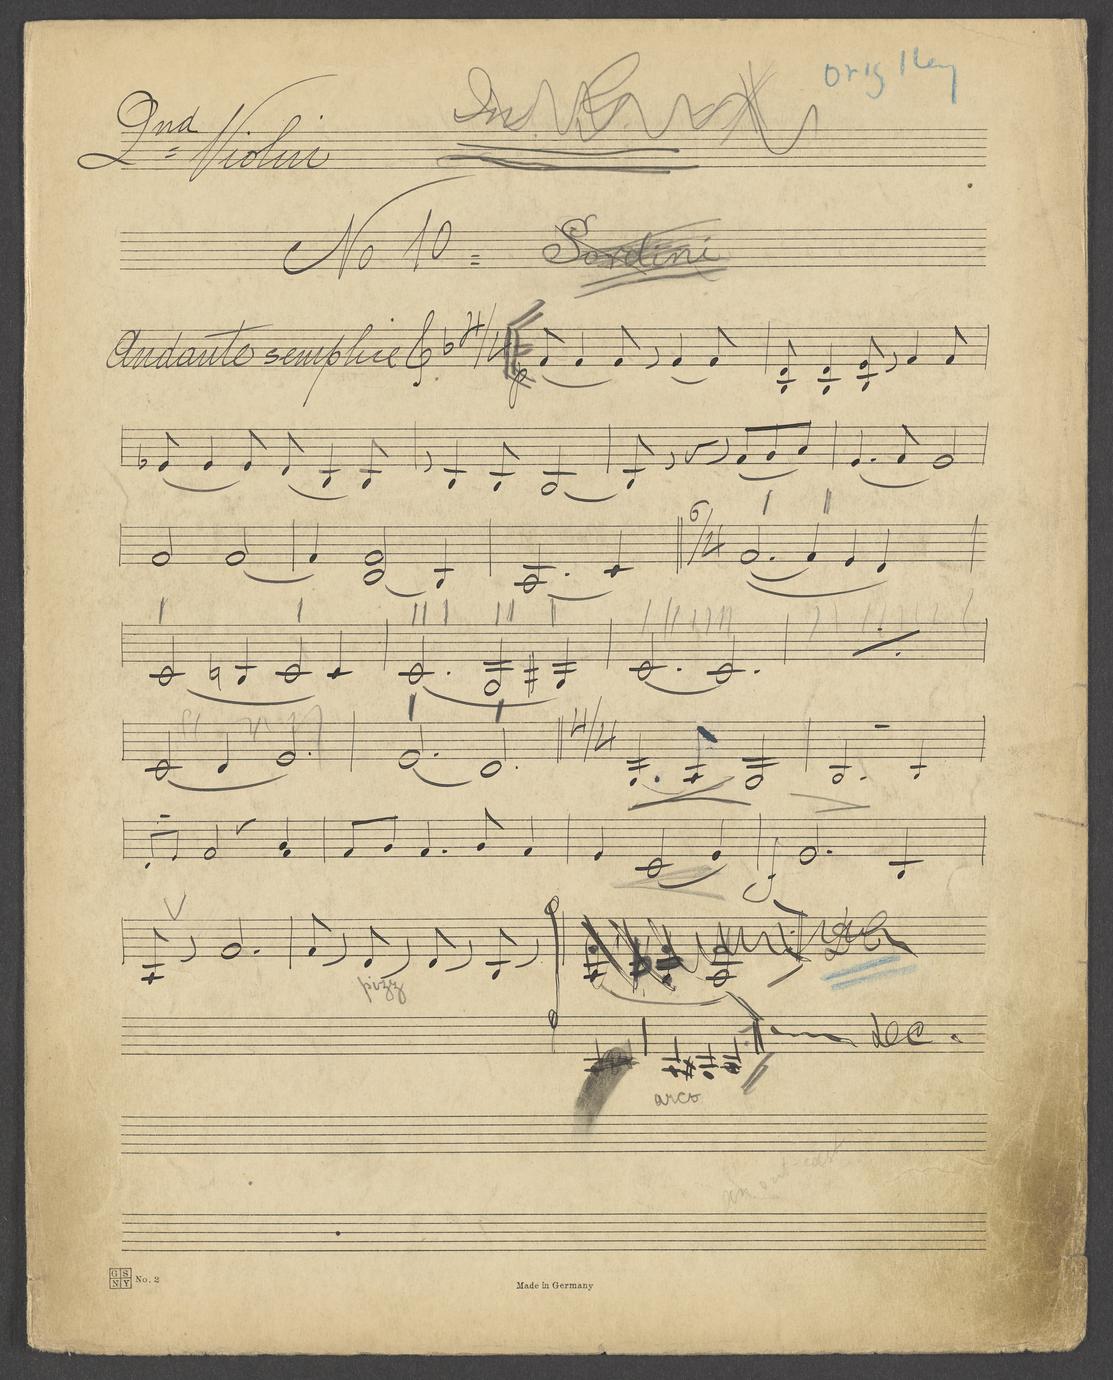 Orig Key
2nd Violin
No 10 = Sordini
Andante semplice 4/4 p
6/4
4/4
f
pizz
dec.
arco
GS NY No. 2
Made in Germany